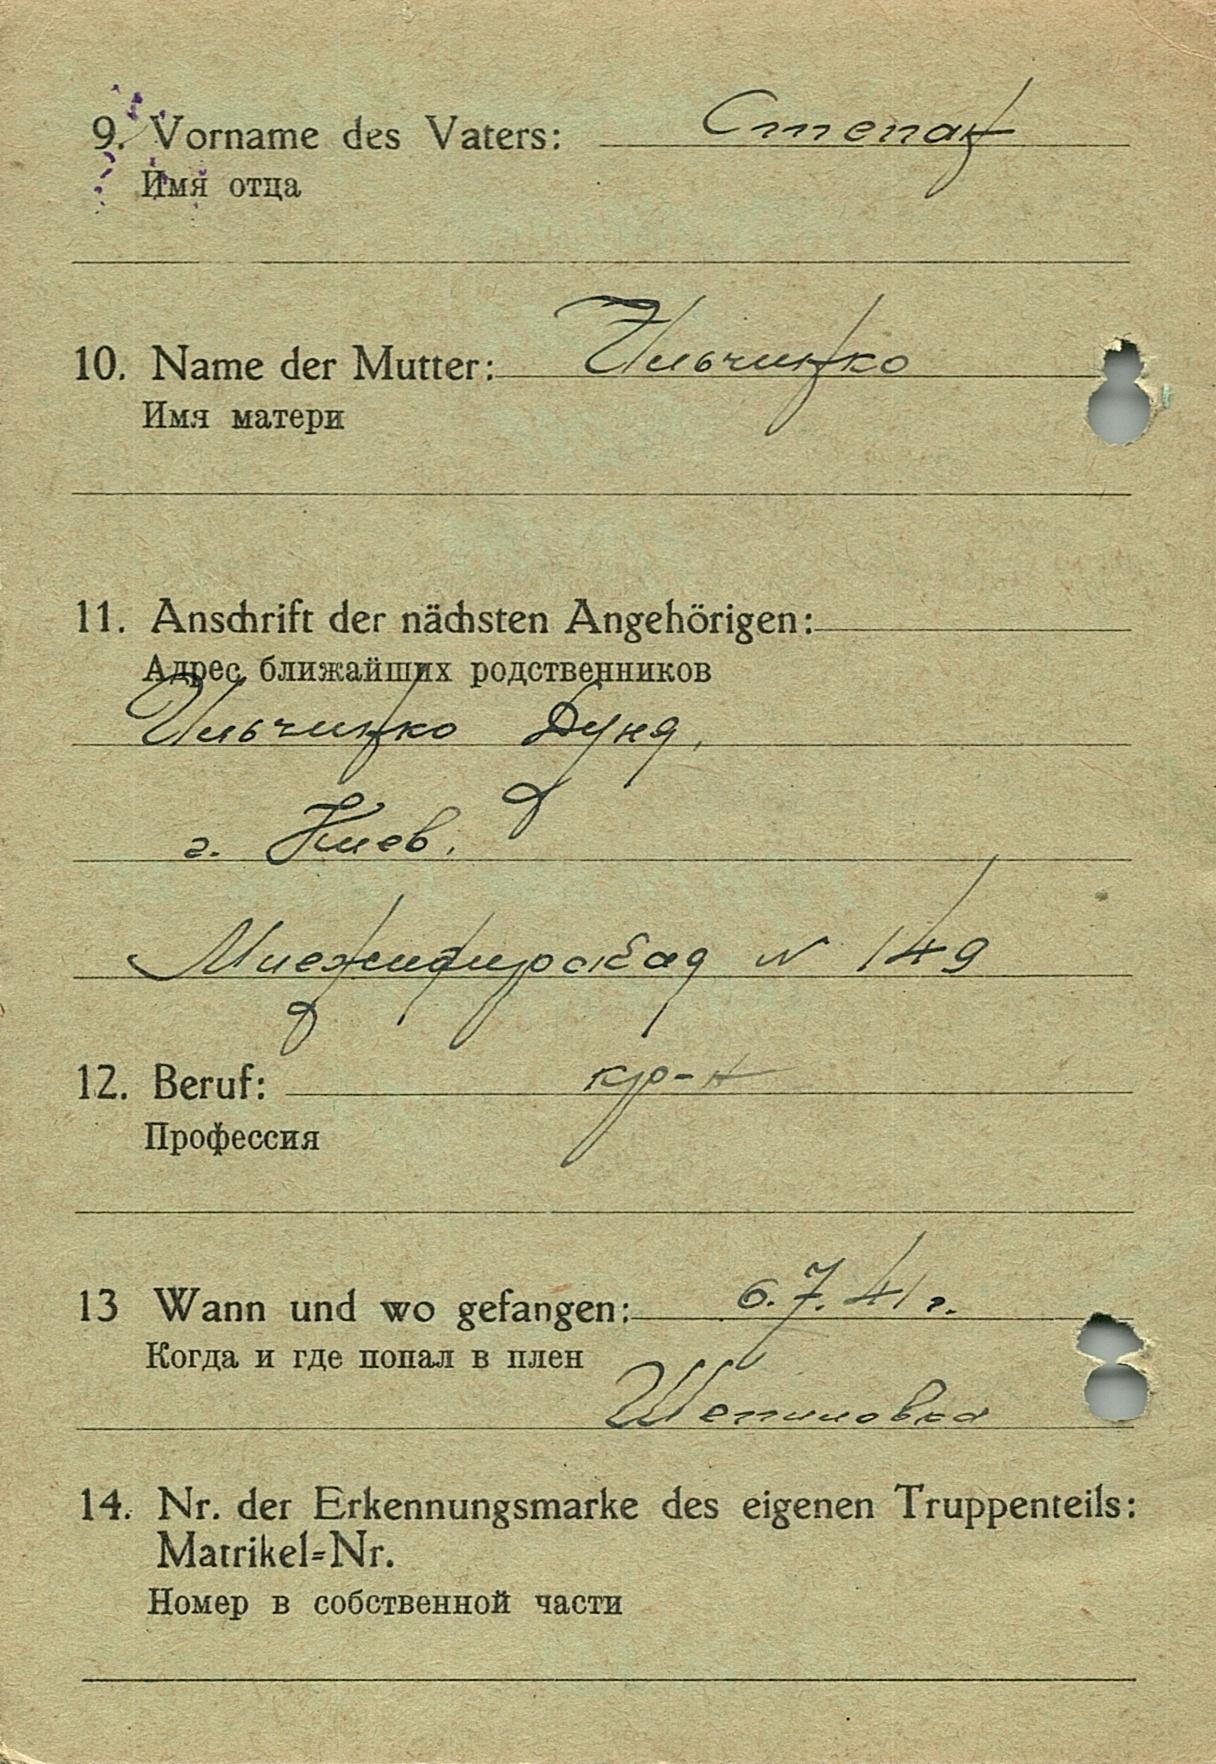 9. Vorname des Vaters: Степан
Имя отца
10. Name der Mutter: Ильчинко
Имя матери
11. Anschrift der nächsten Angehörigen:
Адрес ближайших родственников
Ильчинко Дуня,
г. Киев.
№ 149
12. Beruf: кр-н
Профессия
13 Wann und wo gefangen: 6.7.41 г.
Когда и где попал в плен
Шепиловка
14. Nr. der Erkennungsmarke des eigenen Truppenteils:
Matrikel=Nr.
Номер в собственной части